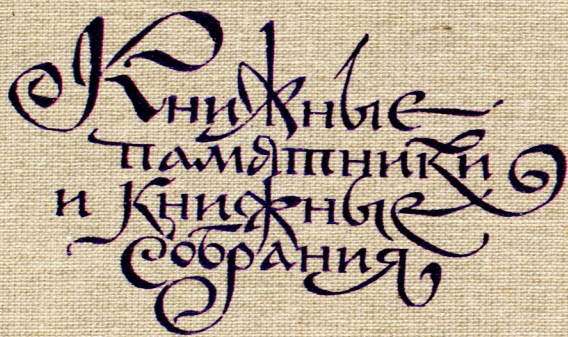 Книжные
памятники
и книжные
собрания